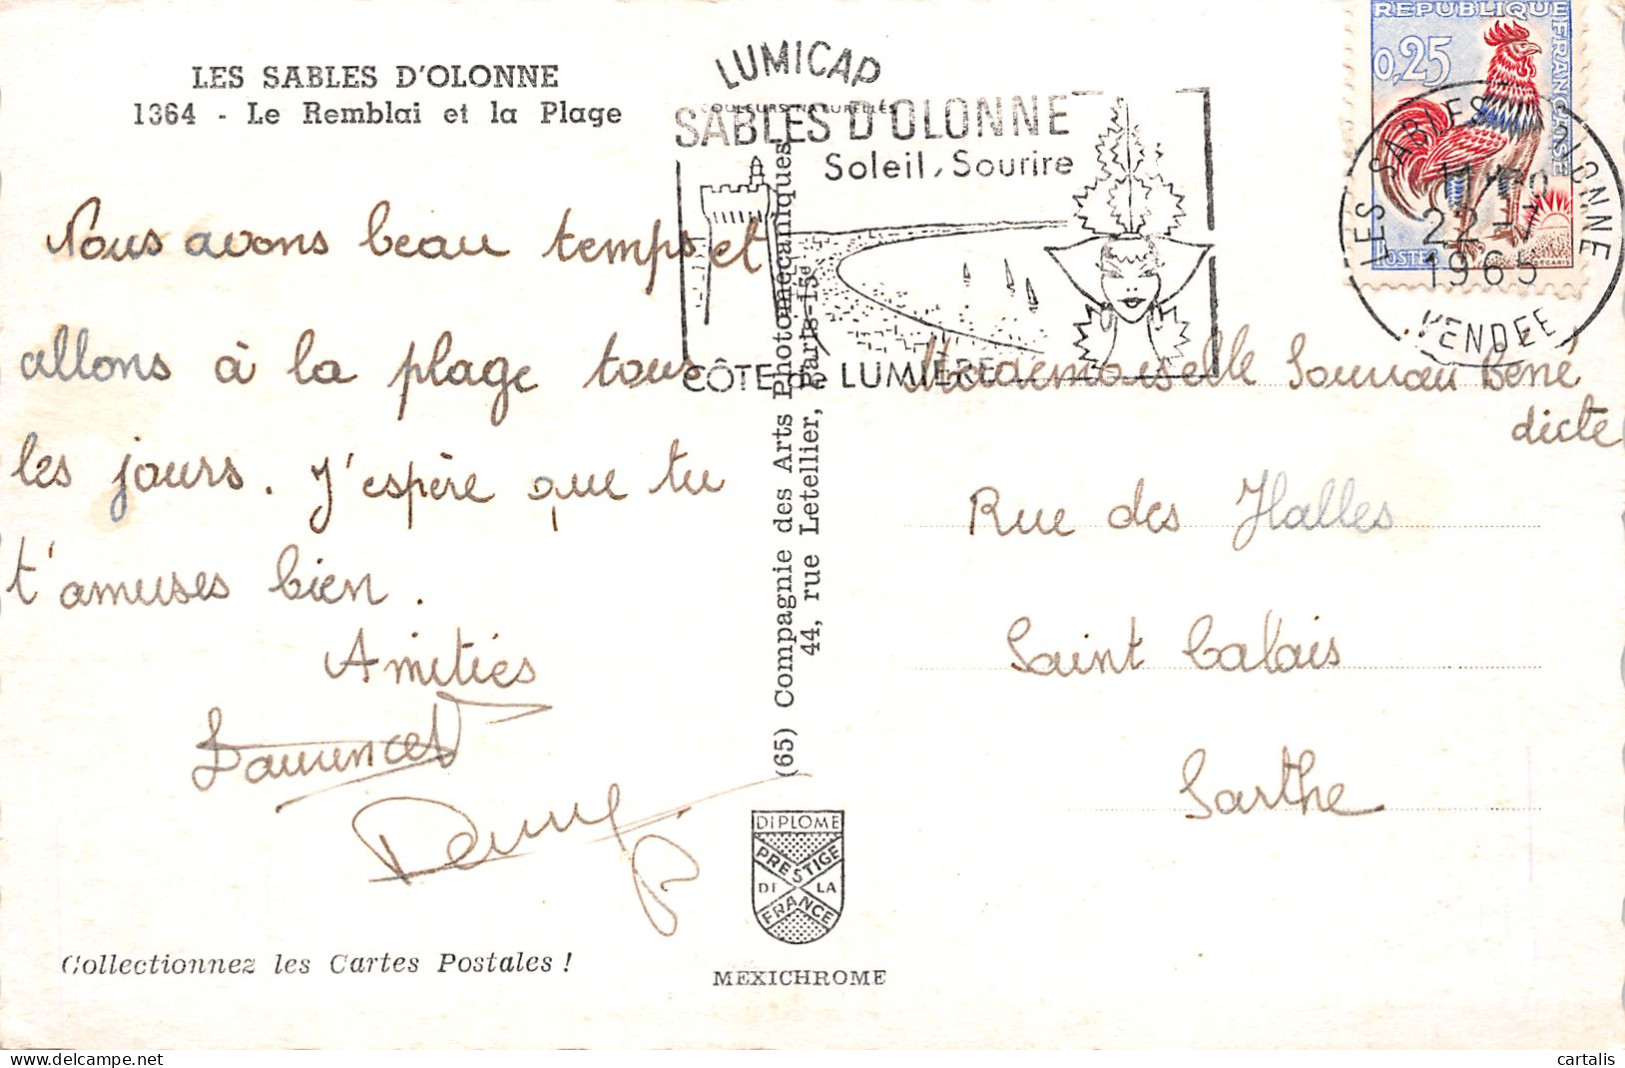 LES SABLES D'OLONNE
1364 - Le Remblai et la Plage
Nous avons beau temps et
allons à la plage tous
les jours. J'espère que tu
t'amuses bien.
Amitiés
Collectionnez les Cartes Postales !
LUMICAP
COULEURS NATURELLES
SABLES D'OLONNE
Soleil, Sourire
CÔTE de LUMIÈRE
(65) Compagnie des Arts Photomécaniques
44, rue Letellier, Paris-15e
DIPLOME
PRESTIGE
DE LA
FRANCE
MEXICHROME
REPUBLIQUE FRANCAISE
0,25
POSTES
DECARIS
LES SABLES D'OLONNE
22 - 7
1965
VENDEE
Mademoiselle Béné
dicte
Rue des Halles
Saint Calais
Sarthe
cartalis